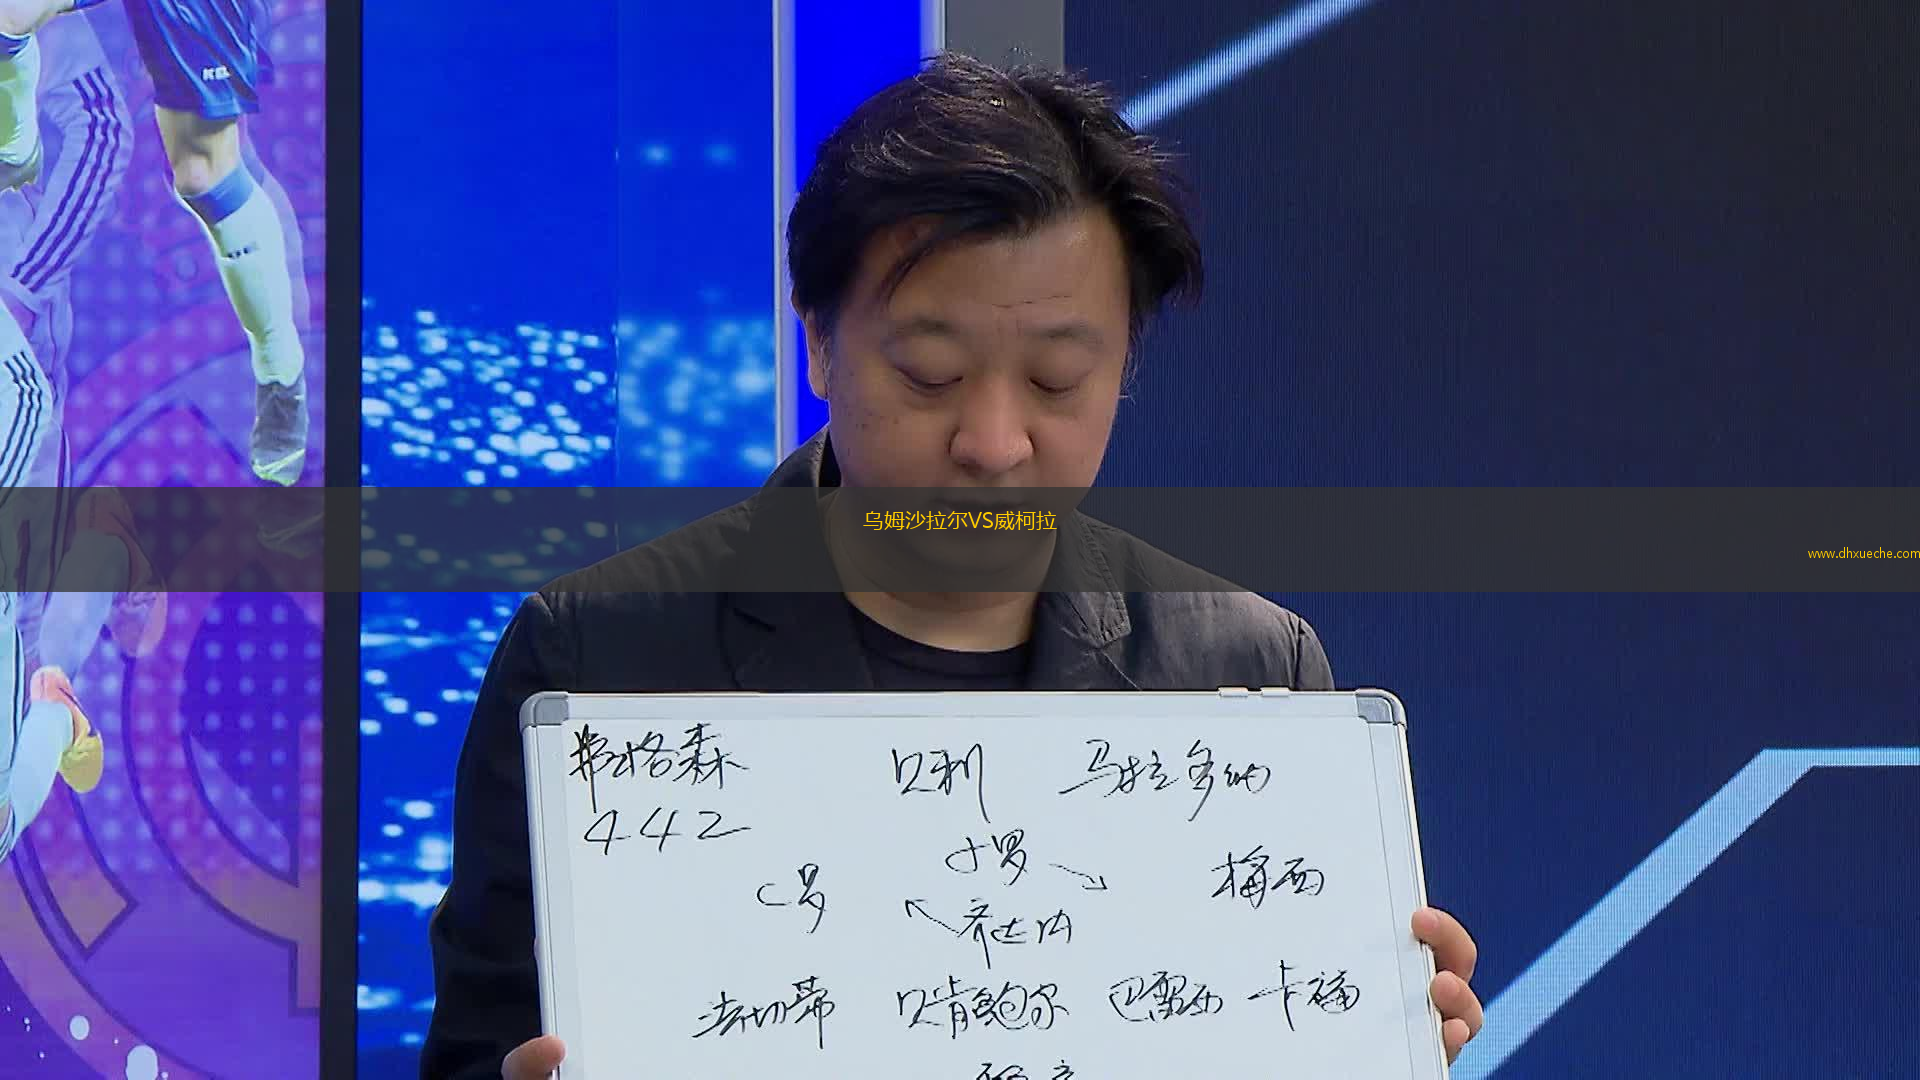 乌姆沙拉尔VS威柯拉
www.dhxueche.com
弗格森 贝利 马拉多纳
442
小罗
C罗 梅西
齐达内
法切蒂 贝肯鲍尔 巴雷西 卡福